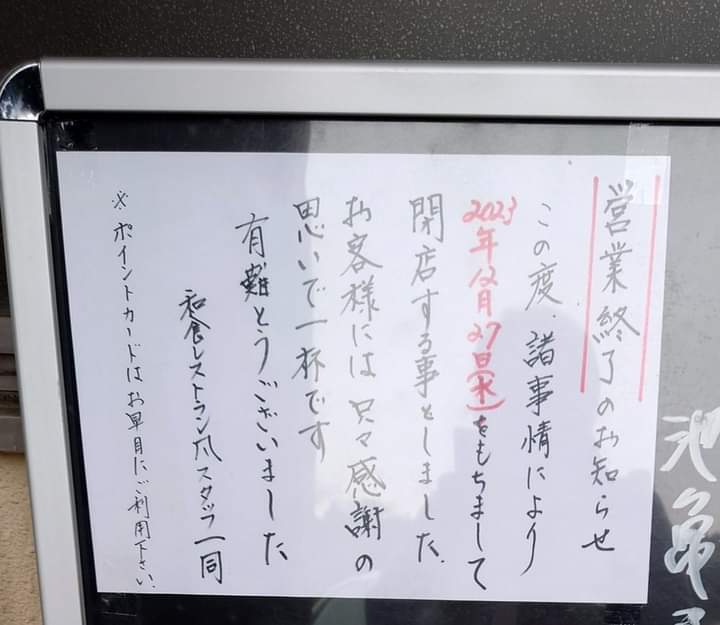 営業終了のお知らせ
この度、諸事情により
2023年12月27日(水)をもちまして
閉店する事としました。
お客様には只々感謝の
思いで一杯です
有難とうございました
和食レストラン爪スタッフ一同
※ポイントカードはお早目にご利用下さい。
池亀